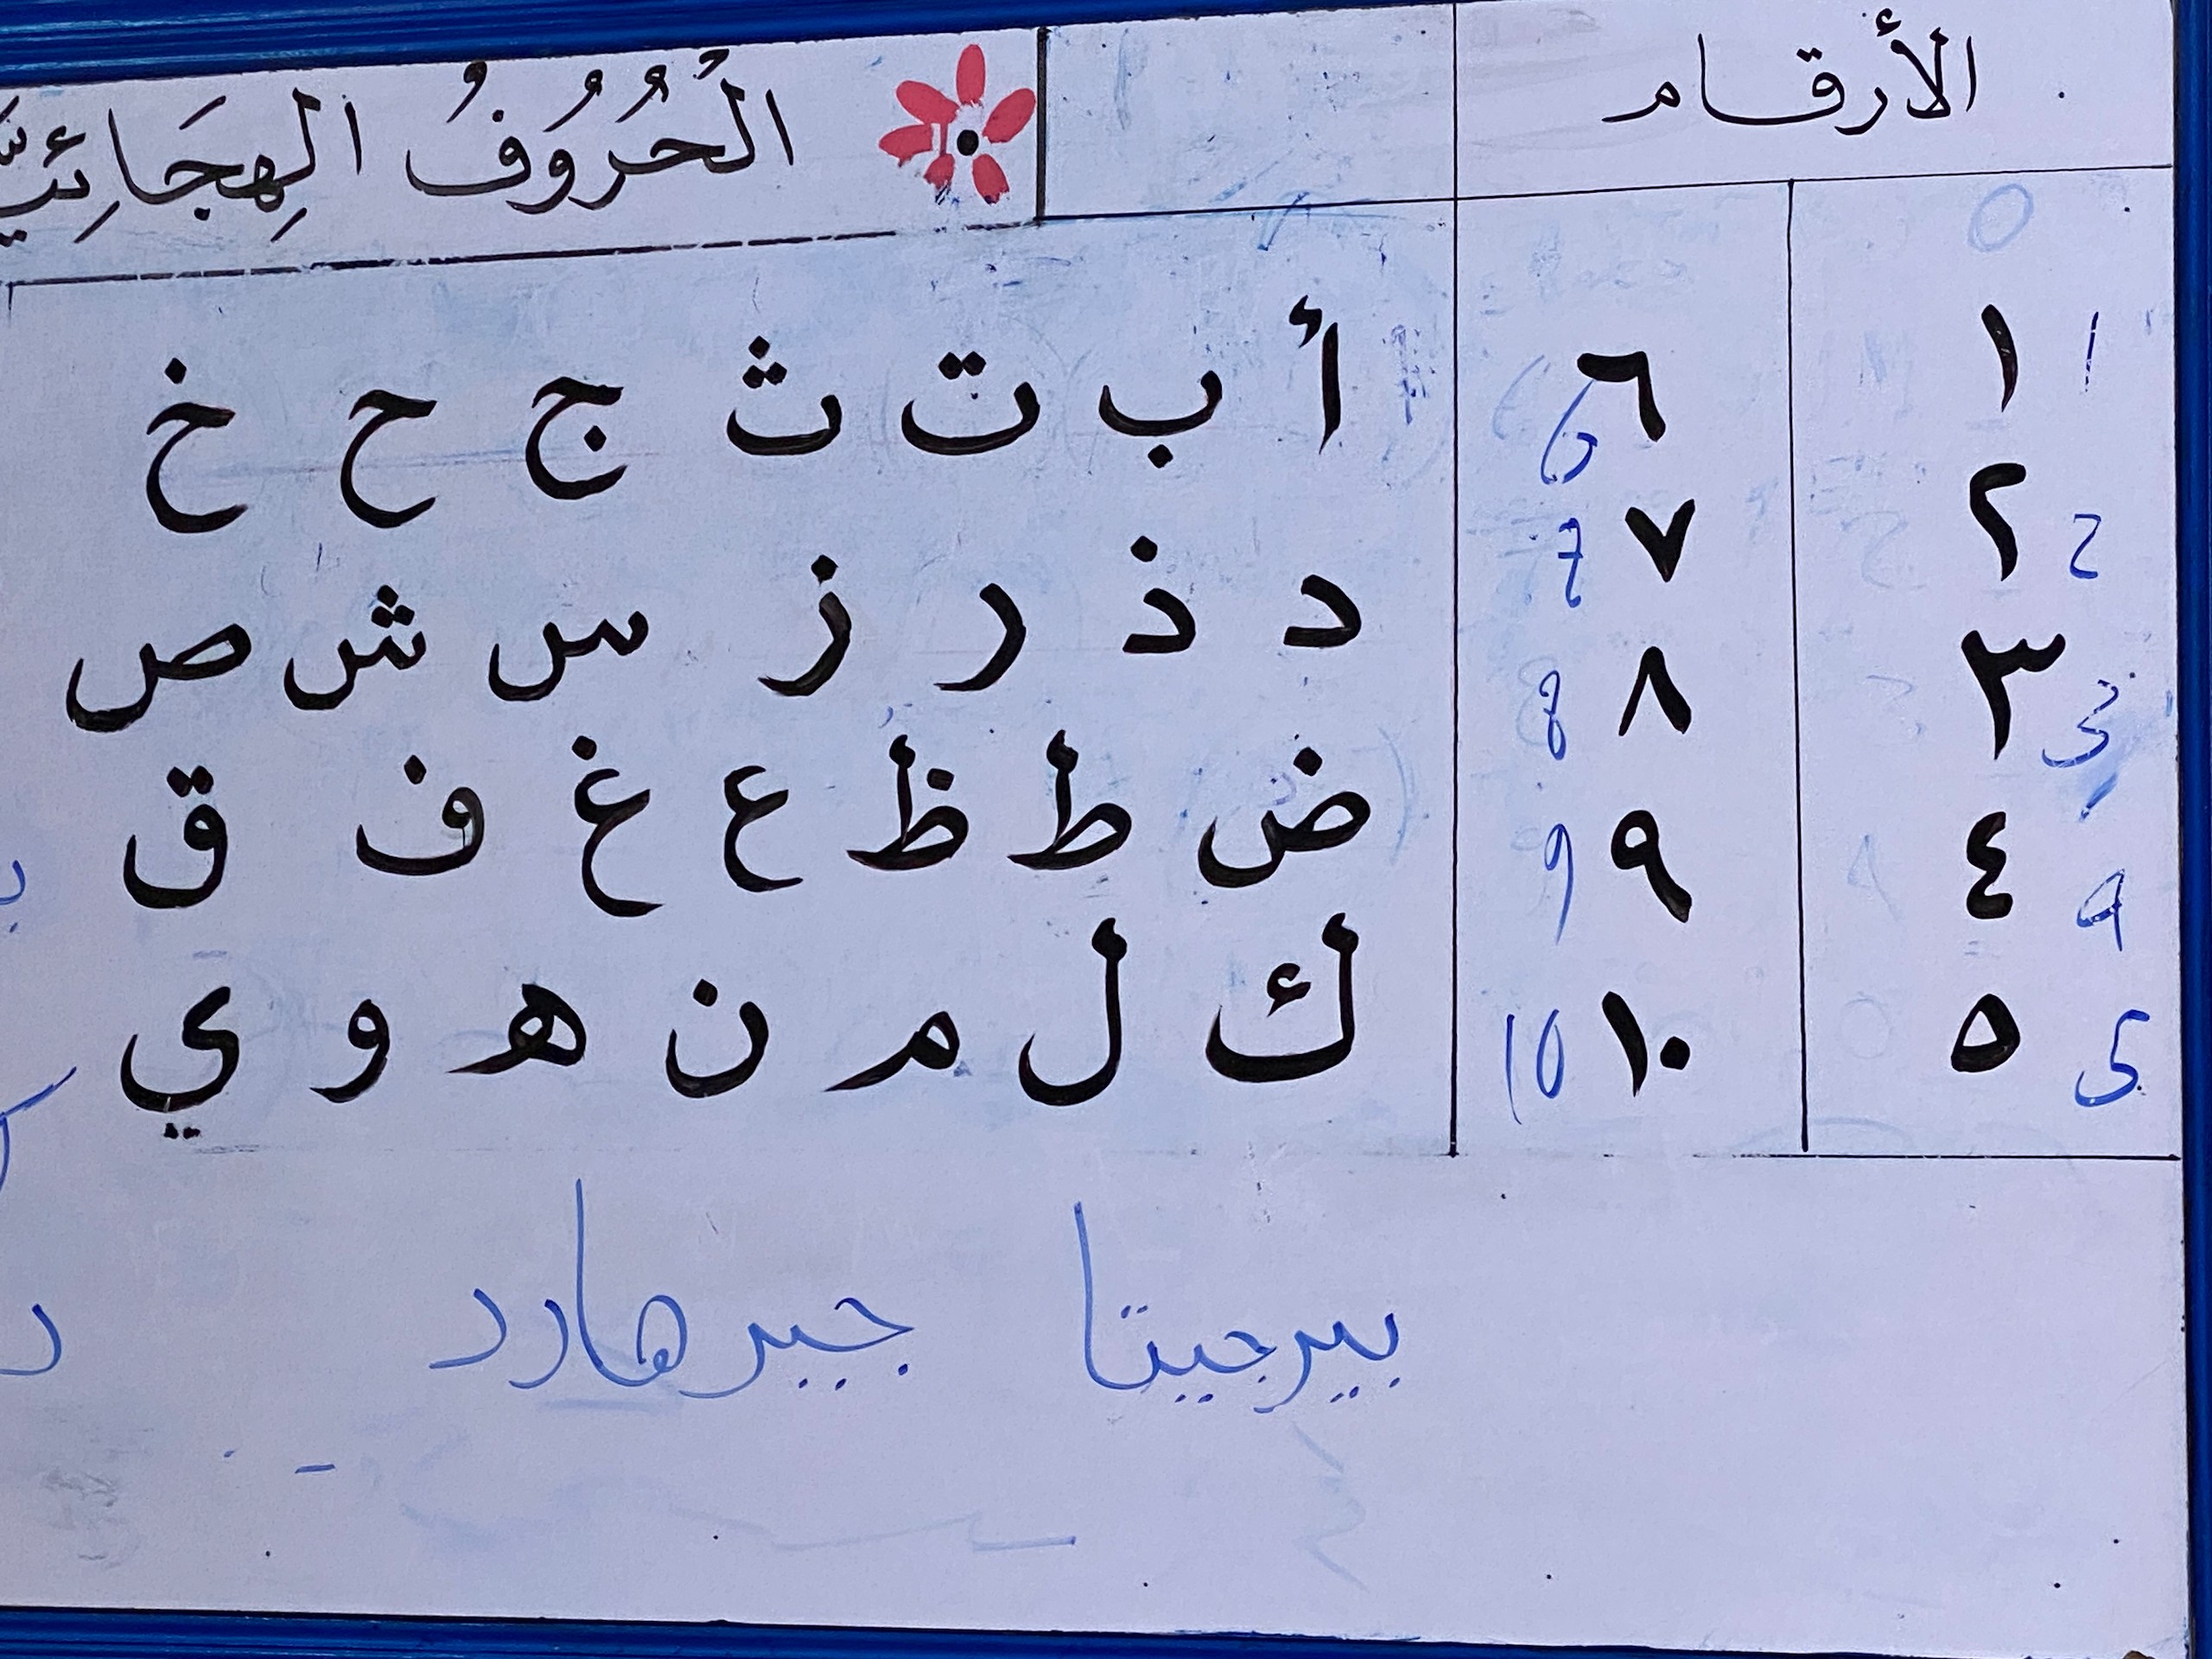 الأرقام
الْحُرُوفُ الهِجَائِيَّ
0
١ 1
٢ 2
٣ 3
٤ 4
٥ 5
٦ 6
٧ 7
٨ 8
٩ 9
١٠ 10
أ ب ت ث ج ح خ
د ذ ر ز س ش ص
ض ط ظ ع غ ف ق
ك ل م ن ه و ي
بيرجيتا جيرهارد